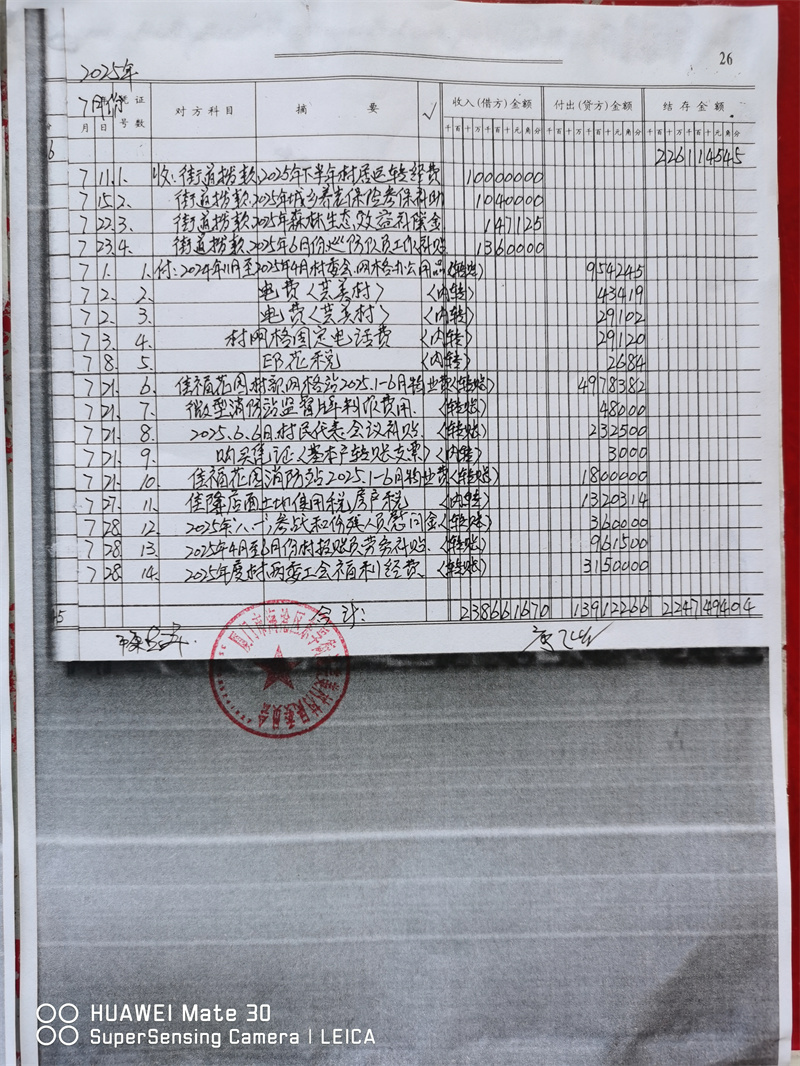 26
2025年
7月份 凭证 对方科目 摘要 √ 收入(借方)金额 付出(贷方)金额 结存金额
月 日 号数 千百十万千百十元角分 千百十万千百十元角分 千百十万千百十元角分
226114545
7 11. 1. 收:街道拨款、2025年下半年村居运转经费 10000000
7 15. 2. 街道拨款、2025年城乡养老保险参保补助 1040000
7 22. 3. 街道拨款、2025年森林生态效益补偿金 147125
7 23. 4. 街道拨款、2025年6月份巡防队员工作补贴 1360000
7 1. 1. 付:2024年11月至2025年4月村委会、网格办公用品(转账) 954245
7 2. 2. 电费(芸美村) (内转) 43419
7 2. 3. 电费(芸美村) (内转) 29102
7 3. 4. 村网格固定电话费 (内转) 29120
7 8. 5. 印花税 (内转) 2684
7 21. 6. 佳福花园村部网格站2025.1-6月物业费(转账) 4978382
7 21. 7. 微型消防站监督牌制作费用. (转账) 48000
7 21. 8. 2025.6.6月村民代表会议补贴. (转账) 232500
7 21. 9. 购买凭证(基本户转账支票) (内转) 3000
7 21. 10. 佳福花园消防站2025.1-6月物业费(转账) 1800000
7 27. 11. 佳隆店面土地使用税、房产税 (内转) 1320314
7 28 12. 2025年"八一"参战和伤残人员慰问金(转账) 360000
7 28 13. 2025年4月至6月份村报账员劳务补贴. (转账) 961500
7 28 14. 2025年度村两委工会福利经费. (转账) 3150000
合计: 238661670 13912266 224749404